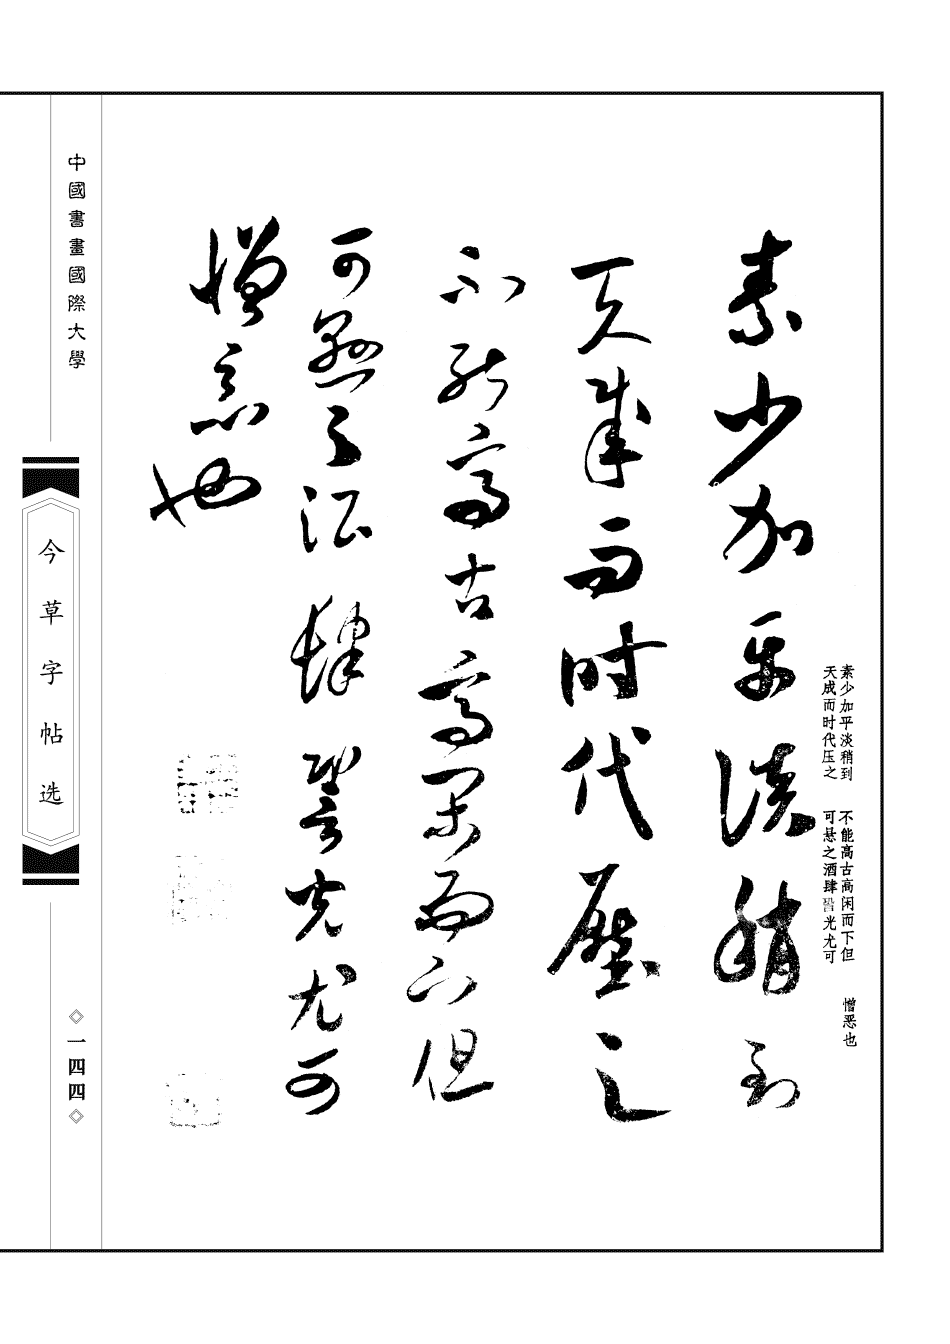 素少加平淡稍到
天成而时代压之
不能高古高闲而下但
可悬之酒肆光尤可
憎恶也
素少加平淡稍到
天成而时代壓之
不能高古高闲而下但
可悬之酒肆䛒光尤可
憎恶也
中國書畫國際大學
今草字帖选
一四四